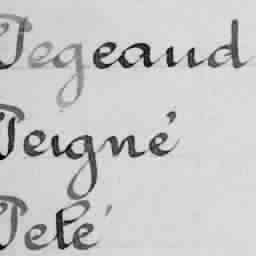 Tegeaud
Teigné
Telé